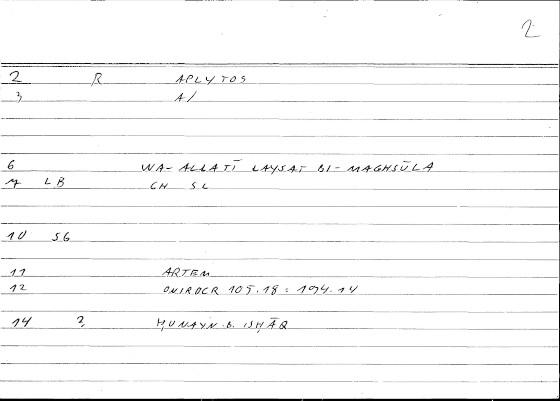 2
2 R APLYTOS
3 A/
6 WA-ALLATĪ LAYSAT BI-MAGHSŪLA
7 LB CH SL
10 SG
11 ARTEM
12 ONIROCR 105.18 = 194.14
14 ? ḤUNAYN B. ISḤĀQ